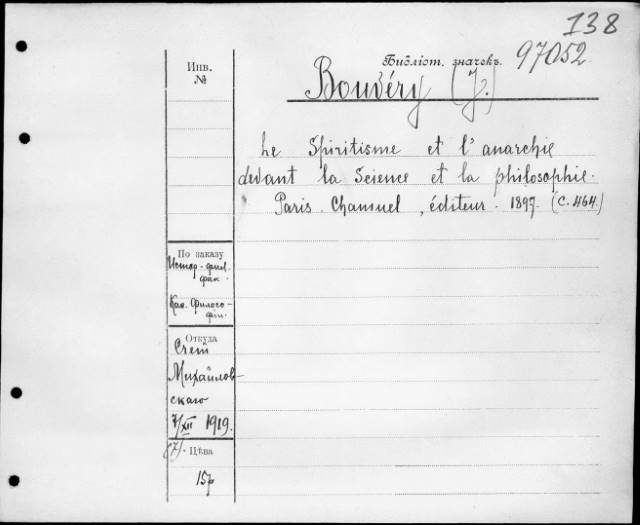 138
Библіот. значекъ. 97052
Инв.
№
Bouvéry (J.)
Le Spiritisme et l'anarchie
devant la Science et la philosophie.
Paris. Chamuel, éditeur. 1897. (с. 464.)
По заказу
Истор-фил.
фак.
Каб. Филосо-
фіи.
Откуда
Счет
Михайлов-
скаго
7/XII 1919.
(7) - Цѣна
15р